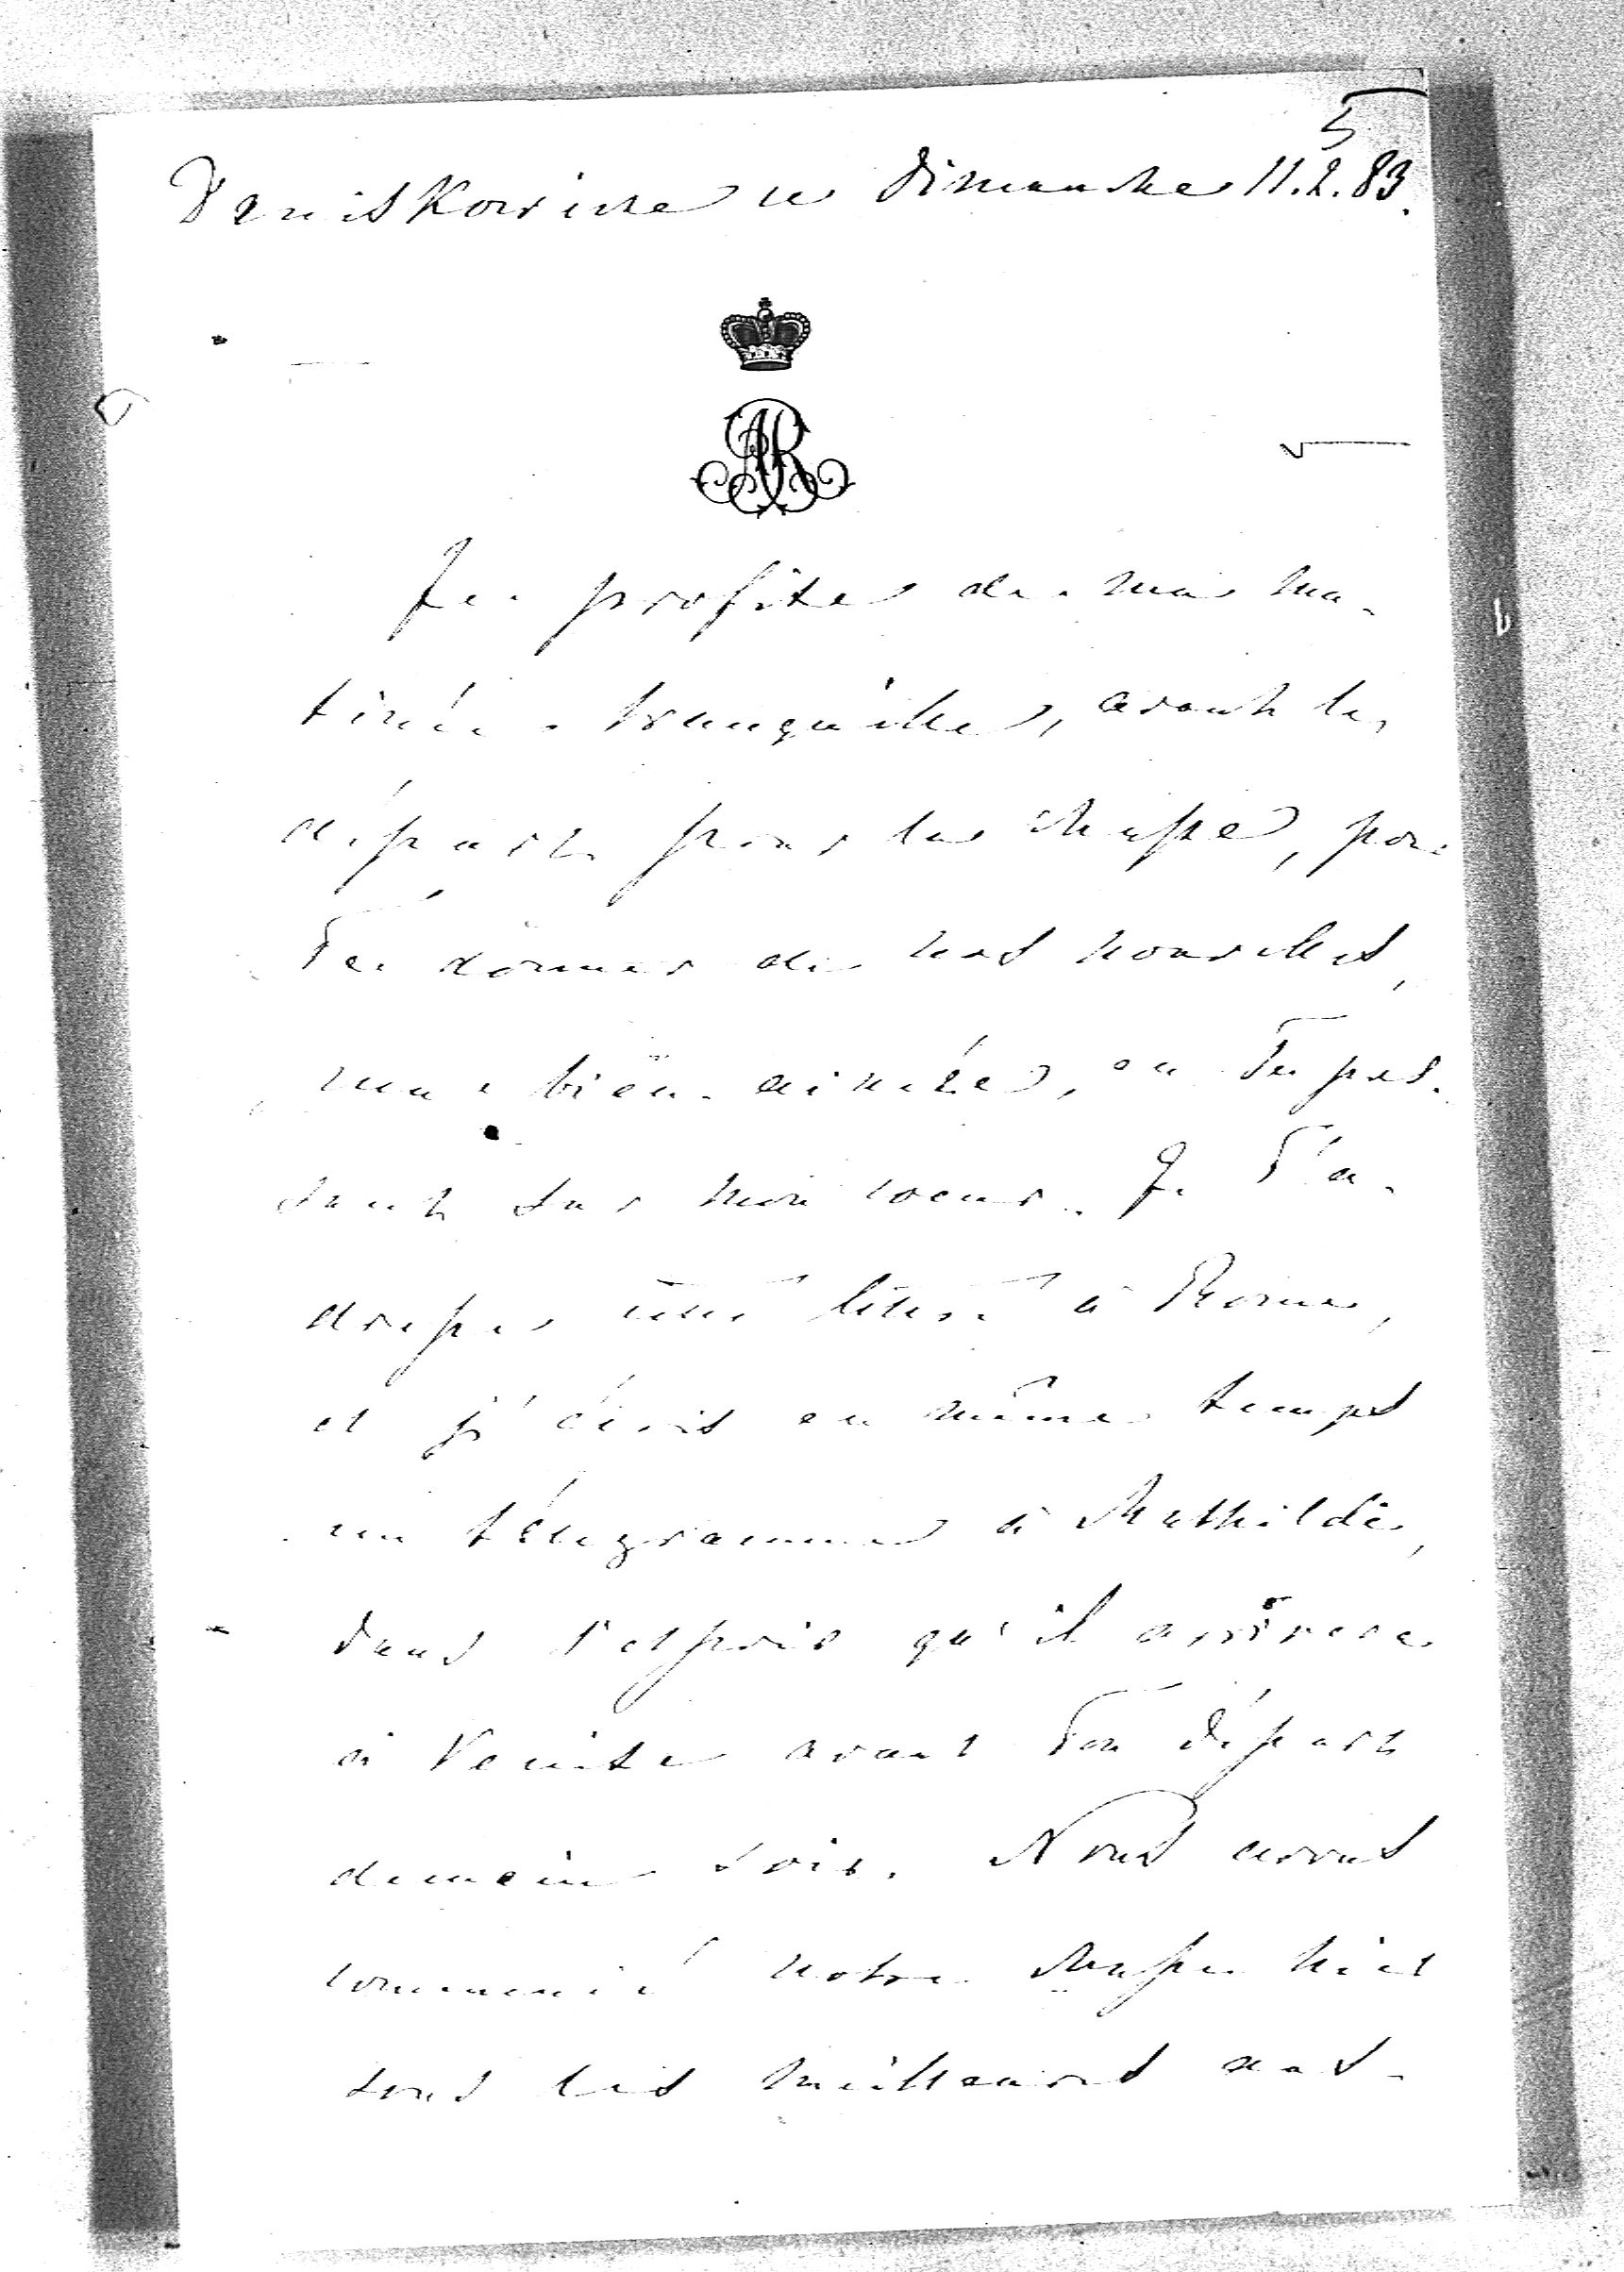 5
Daniskowicze ce Dimanche 11.2.83.
AR
Je profite de ma ma-
tinée tranquille, avant le
départ pour la chasse, pour
Te donner de nos nouvelles,
ma bien-aimée, en Te pres-
sant sur mon coeur. Je T'a-
dresse une lettre à Rome,
et j'écris en même temps
un télégramme à Mathilde,
dans l'espoir qu'il arrivera
à Venise avant Ton départ
demain soir. Nous avons
commencé notre chasse hier
sous les meilleurs aus-